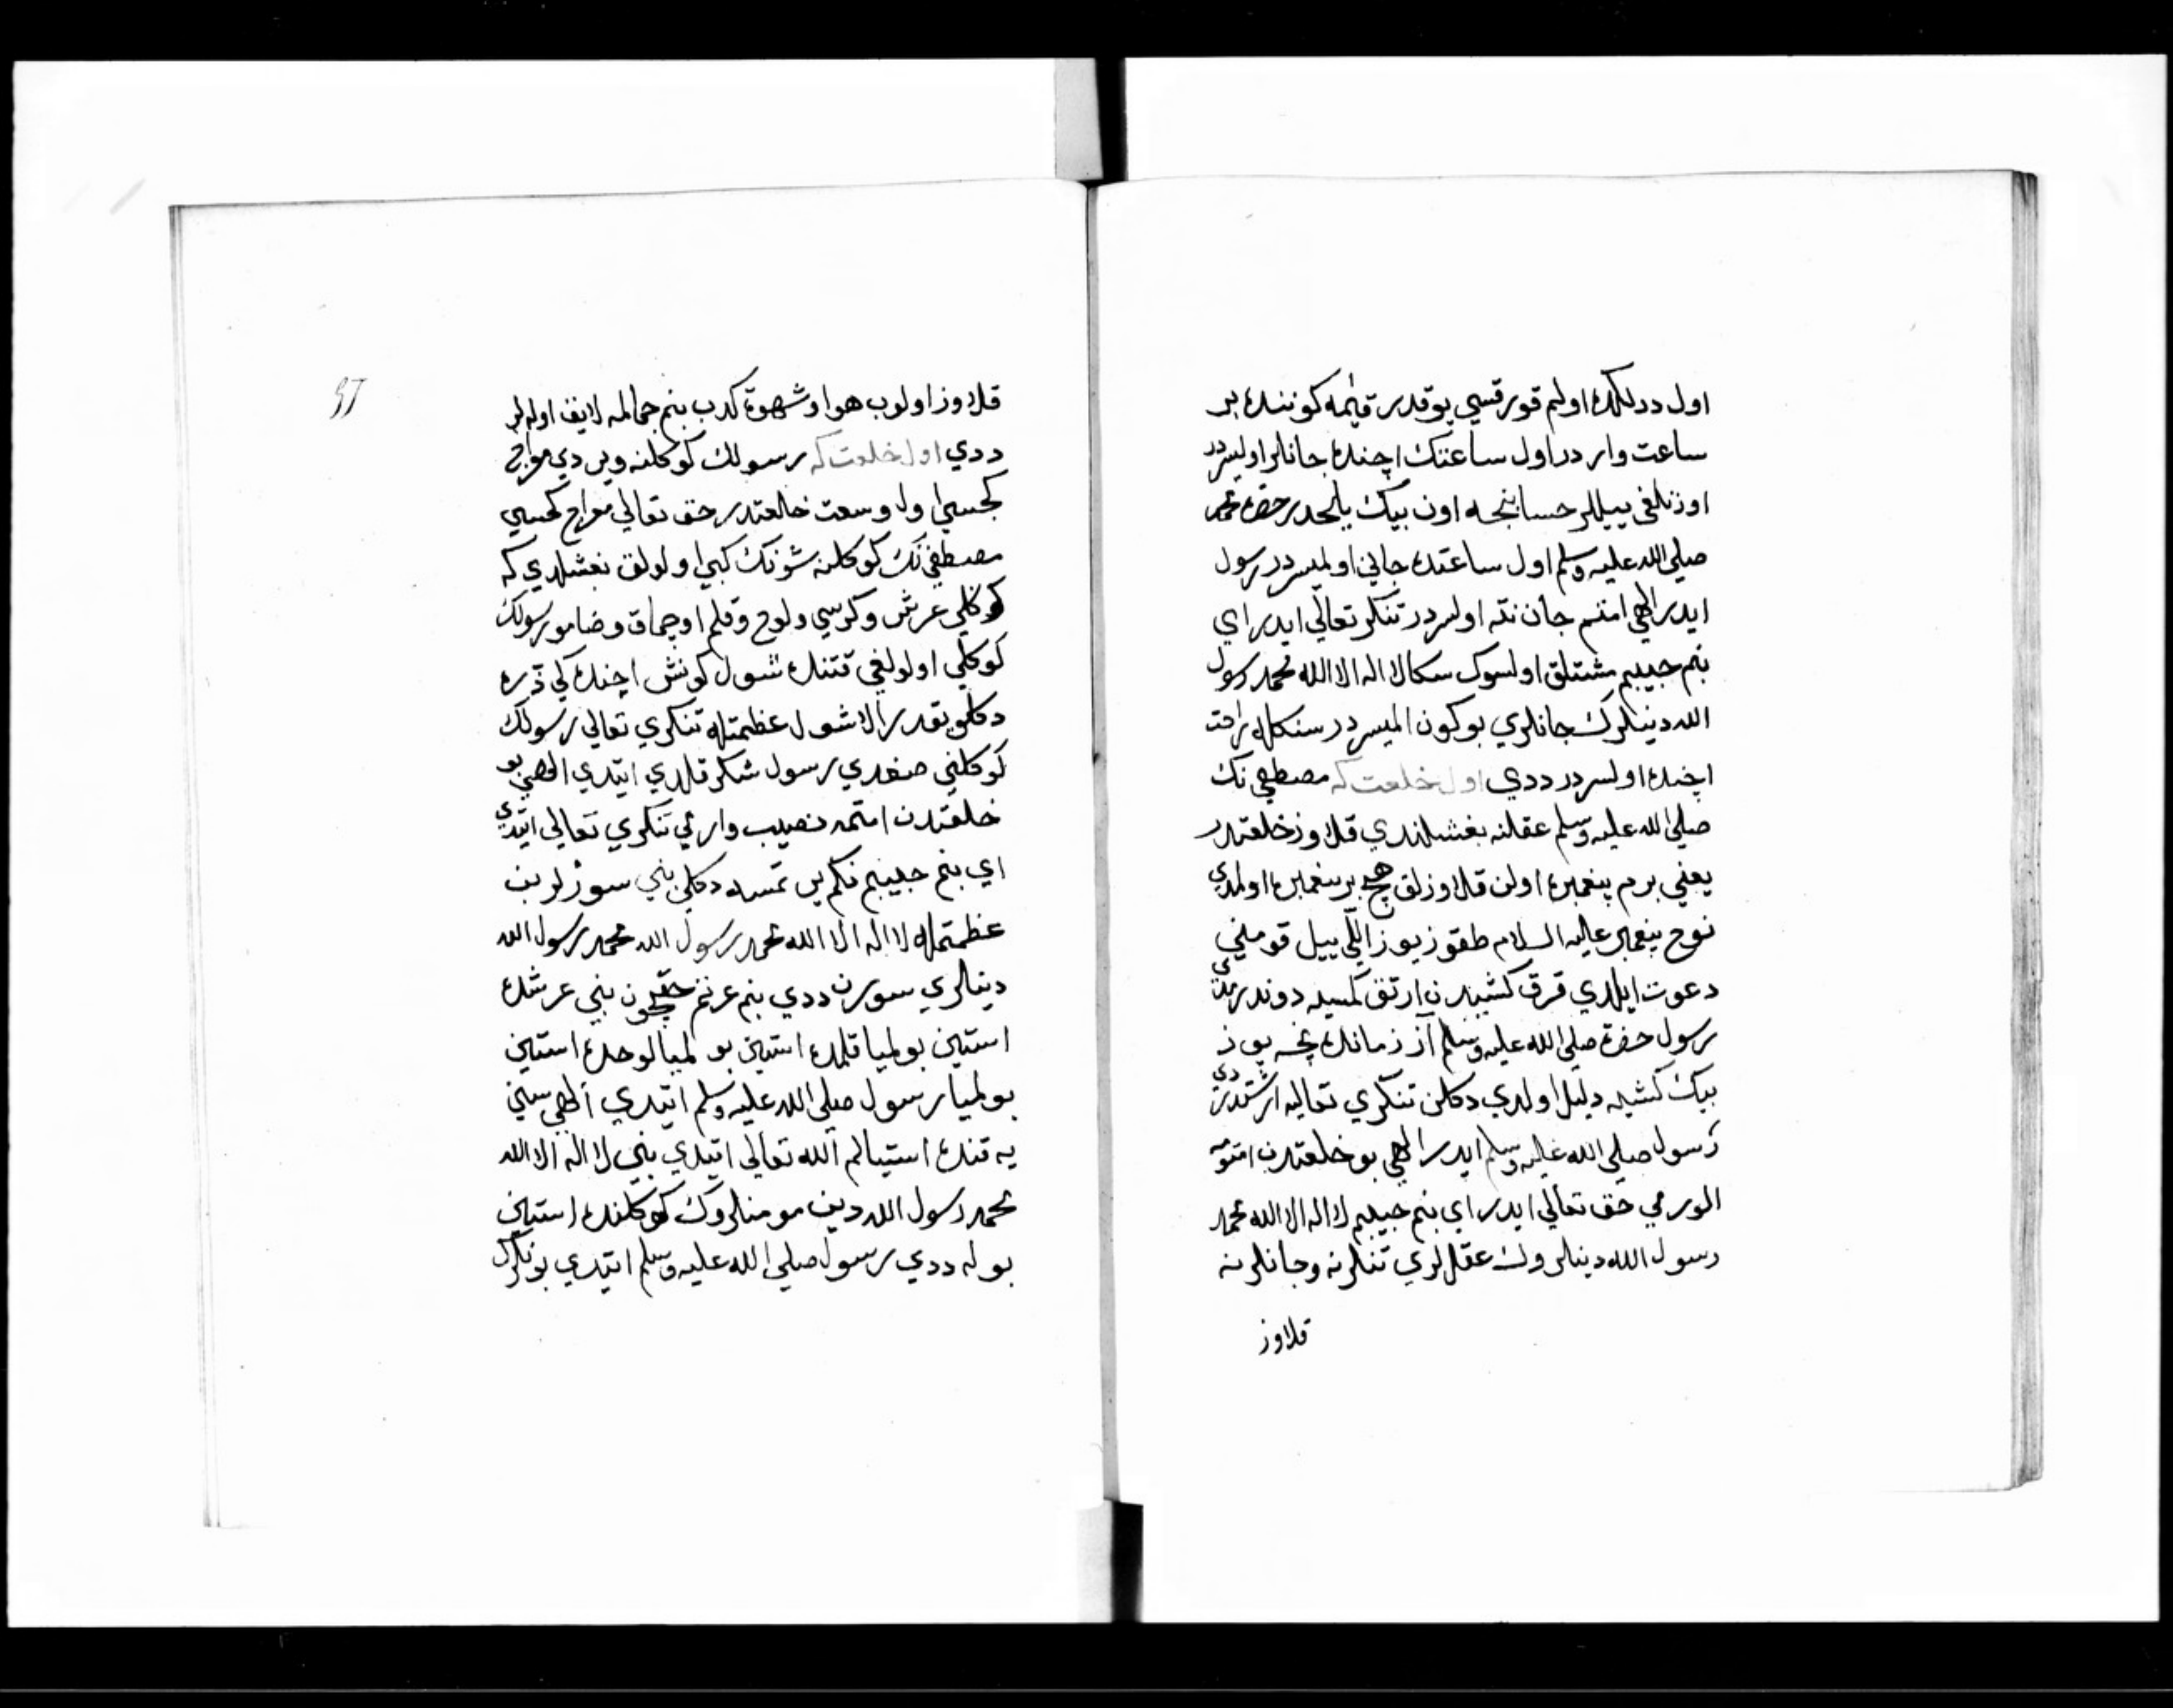 اول دردلكده اولم قورقسي يوقدر قيٰمه كوننده بر
ساعت وار در اول ساعتك اچنده جانلر اوليسردر
اوزنلغى ييللر حسابنجه اون بيك ييلجدر حضرة محمد
صلي الله عليه وسلم اول ساعتده جاني اولميسردر رسول
ايدر الهي امتم جان نته اولسردر تنكر تعالي ايدر اي
بنم حبيبم مشتلق اولسون سكا لا اله الا الله محمد رسول
الله دينلرك جانلري بو كون الميسردر سنكله راحت
اچنده اولسردر ددي اول خلعت كه مصطفي نك
صلي الله عليه وسلم عقلنه بغشلندي قلاوز خلعتدر
يعني بر م پيغمبره اولن قلاوزلق هيچ بر پيغمبره اولمدي
نوح پيغمبر عليه السلام طقوز يوز اللّي ييل قومني
دعوت ايلدي قرق كشيدن ارتق كمسيه دوندرمدي
رسول حضرة صلي الله عليه وسلم آز زمانده نچه يوز
بيك كشيه دليل اولدي دكلن تنكري تعاليه ارشتدردي
رسول صلي الله عليه وسلم ايدر الهي بو خلعتدن امتومه
الور مي حق تعالي ايدر اي بنم حبيبم لا اله الا الله محمد
رسول الله دينلروك عقللري تنلرنه وجانلرنه
قلاوز
قلاوز اولوب هوا وشهوة كدب بنم جمالمه لايق اولدلر
ددي اول خلعت كه رسولك كوكلنه ويردي معراج
كجسي اول وسعت خلعتدر حق تعالي معراج كجسي
مصطفي نك كوكلنه شونك كبي اولولق بغشلدي كه
كوكلي عرش وكرسي ولوح وقلم اوچماق وضامو رسولك
كوكلي اولولغي قتنده شول كونش اچنده كي ذره
دكلو يقدر الا شول عظمتله تنكري تعالي رسولك
كوكلني صغدي رسول شكر قلدي ايتدي الهي بو
خلعتدن امتمه نصيب وار مي تنكري تعالي ايتدي
اي بنم حبيبم نكم ير تمسه دكلي بني سوزلر بن
عظمتمله لا اله الا الله محمد رسول الله محمد رسول الله
دينلري سورن ددي بنم عرتم حقچون بني عرشده
استين بولميا قلمده استين بولميا لوحده استين
بولميا رسول صلي الله عليه وسلم ايتدي الهي سني
يه قنده استيالم الله تعالي ايتدي بني لا اله الا الله
محمد رسول الله دين مومنلروك كوكلنده استين
بوله ددي رسول صلي الله عليه وسلم ايتدي بونلرك